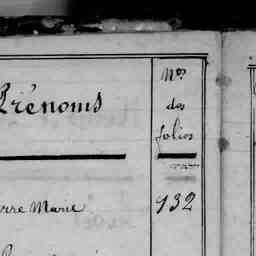 Prénoms
Nos
des
folios
erre Marie
932